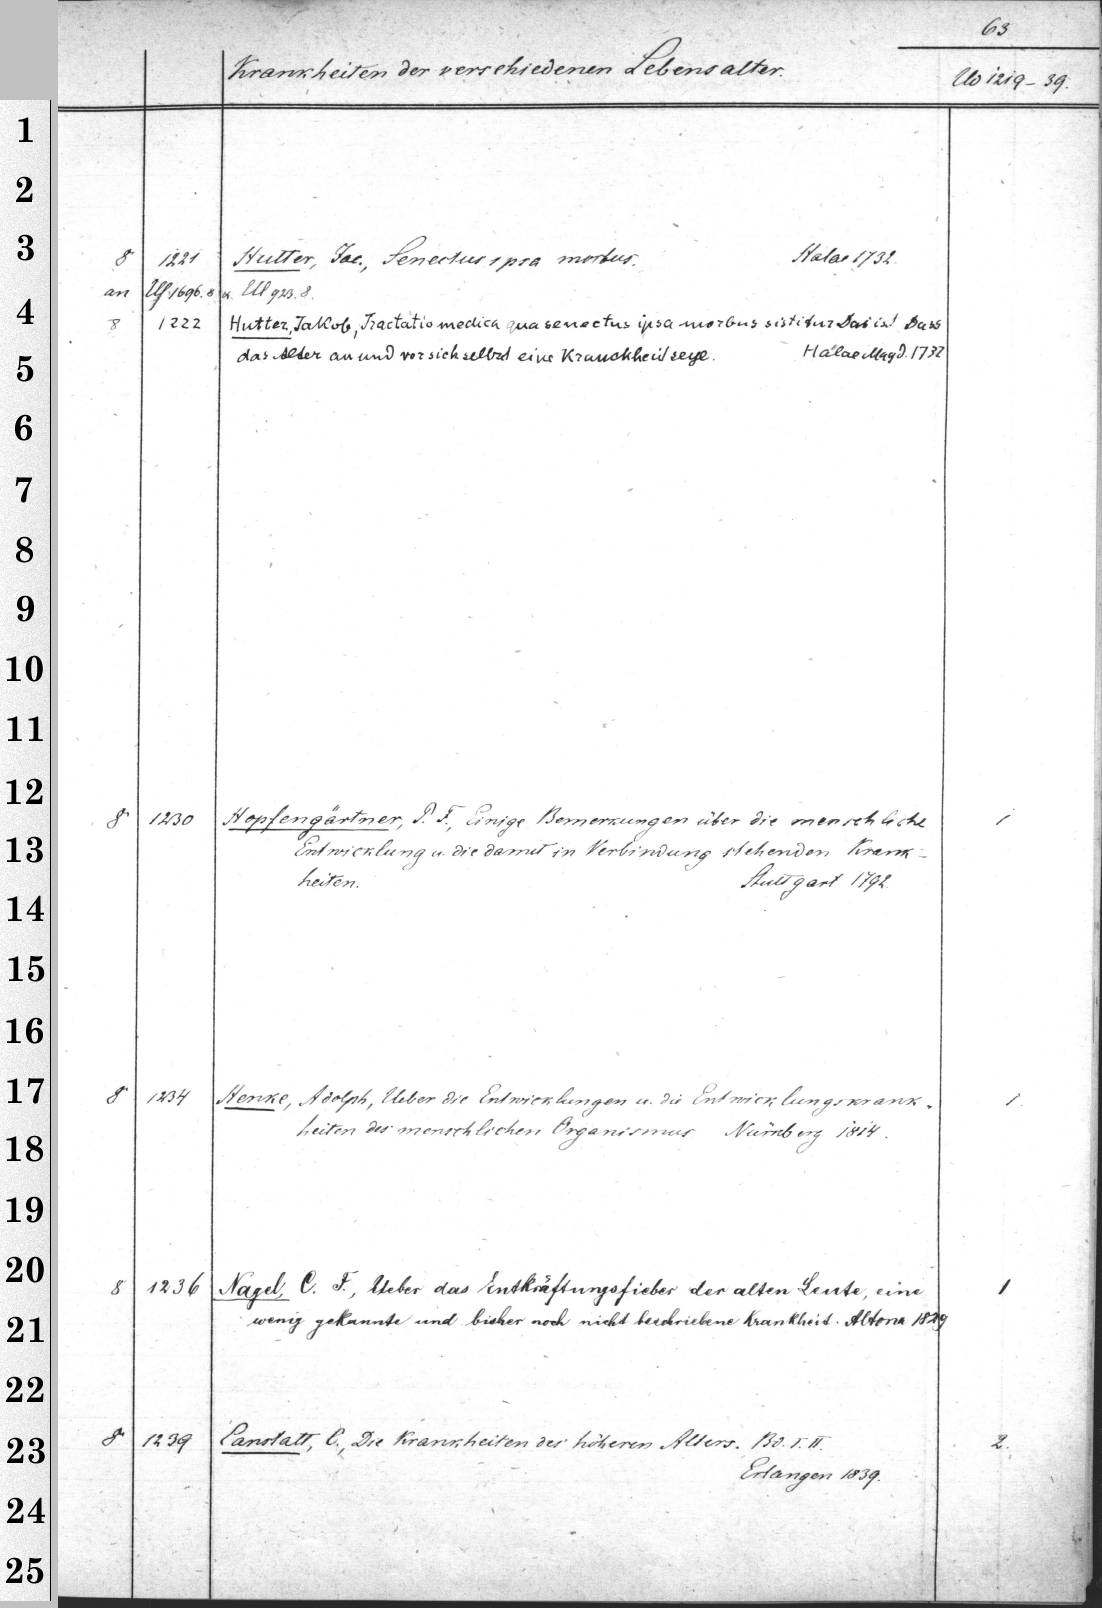 63
Krankheiten der verschiedenen Lebensalter.
Uo 1219-39.
1
2
3
8 1221 Hutter, Jac., Senectus ipsa morbus. Halae 1732.
an Uf 1696. 8 u. Ul 923. 8.
4
8 1222 Hutter, Jakob, Tractatio medica qua senectus ipsa morbus sistitur Das ist Dass
das Alter an und vor sich selbst eine Kranckheit seye. Halae Magd. 1732
5
6
7
8
9
10
11
12
8 1230 Hopfengärtner, P. F., Einige Bemerkungen über die menschliche 1
13
Entwicklung u. die damit in Verbindung stehenden Krank-
heiten. Stuttgart 1792.
14
15
16
17
8 1234 Henke, Adolph, Ueber die Entwicklungen u. die Entwicklungskrank- 1.
heiten des menschlichen Organismus Nürnberg 1814.
18
19
20
8 1236 Nagel, C. F., Ueber das Entkräftungsfieber der alten Leute, eine 1
wenig gekannte und bisher noch nicht beschriebene Krankheit. Altona 1829
21
22
8 1239 Canstatt, C., Die Krankheiten des höheren Alters. Bd. I. II. 2.
23
Erlangen 1839.
24
25